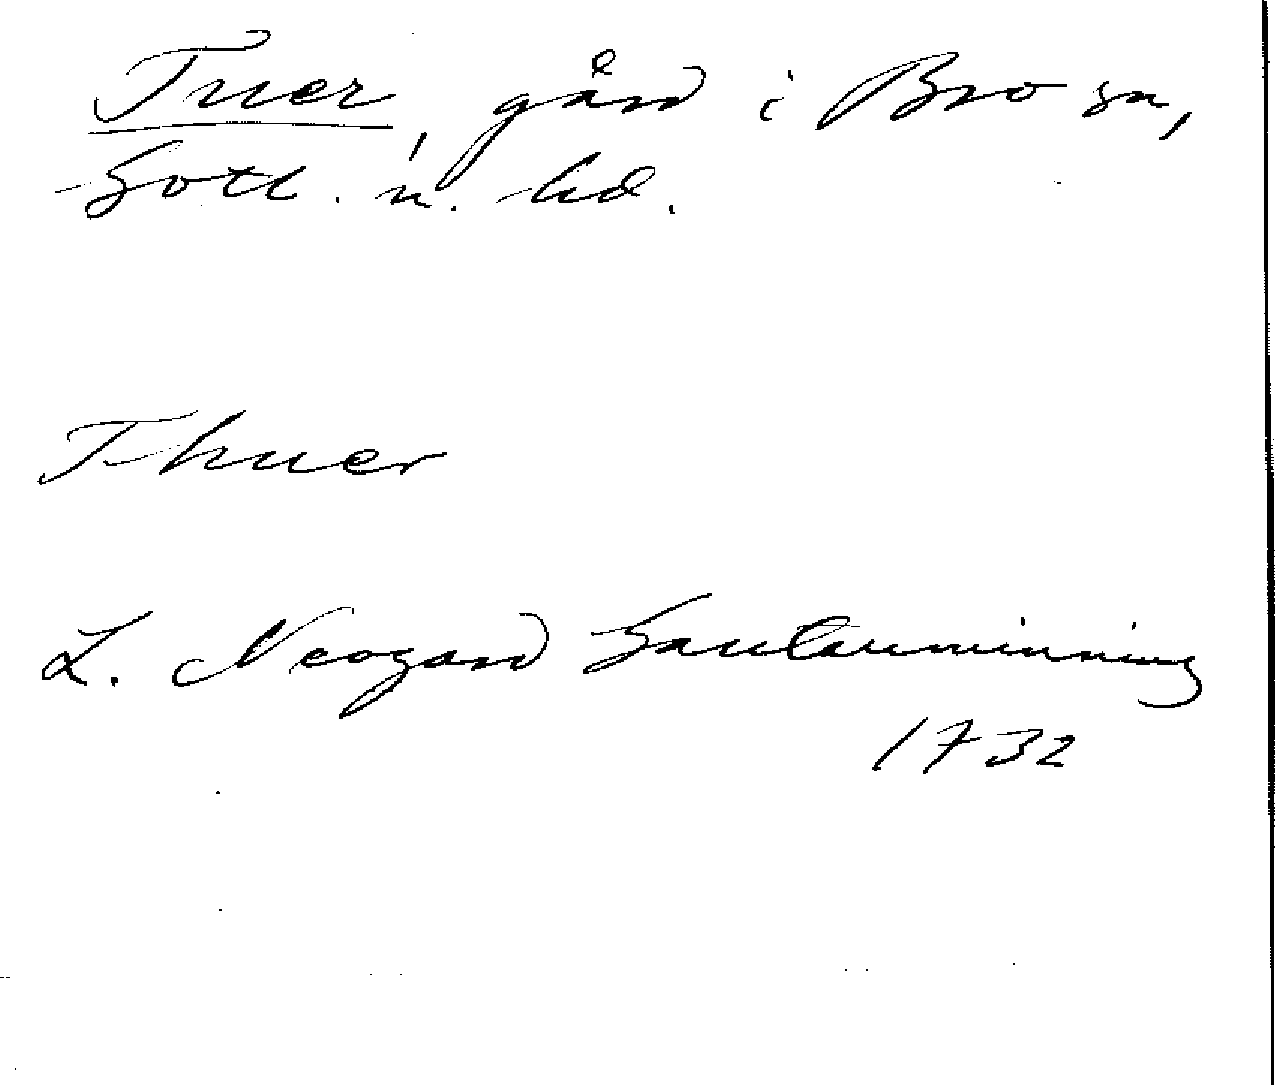 Tuer, gård i Bro sn,
Gotl. n. hd.
Thuer
L. Neogard Gautauminning
1732